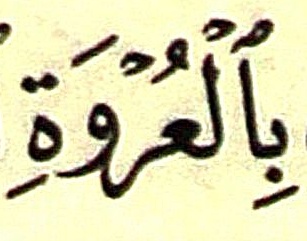 بِٱلْعُرْوَةِ